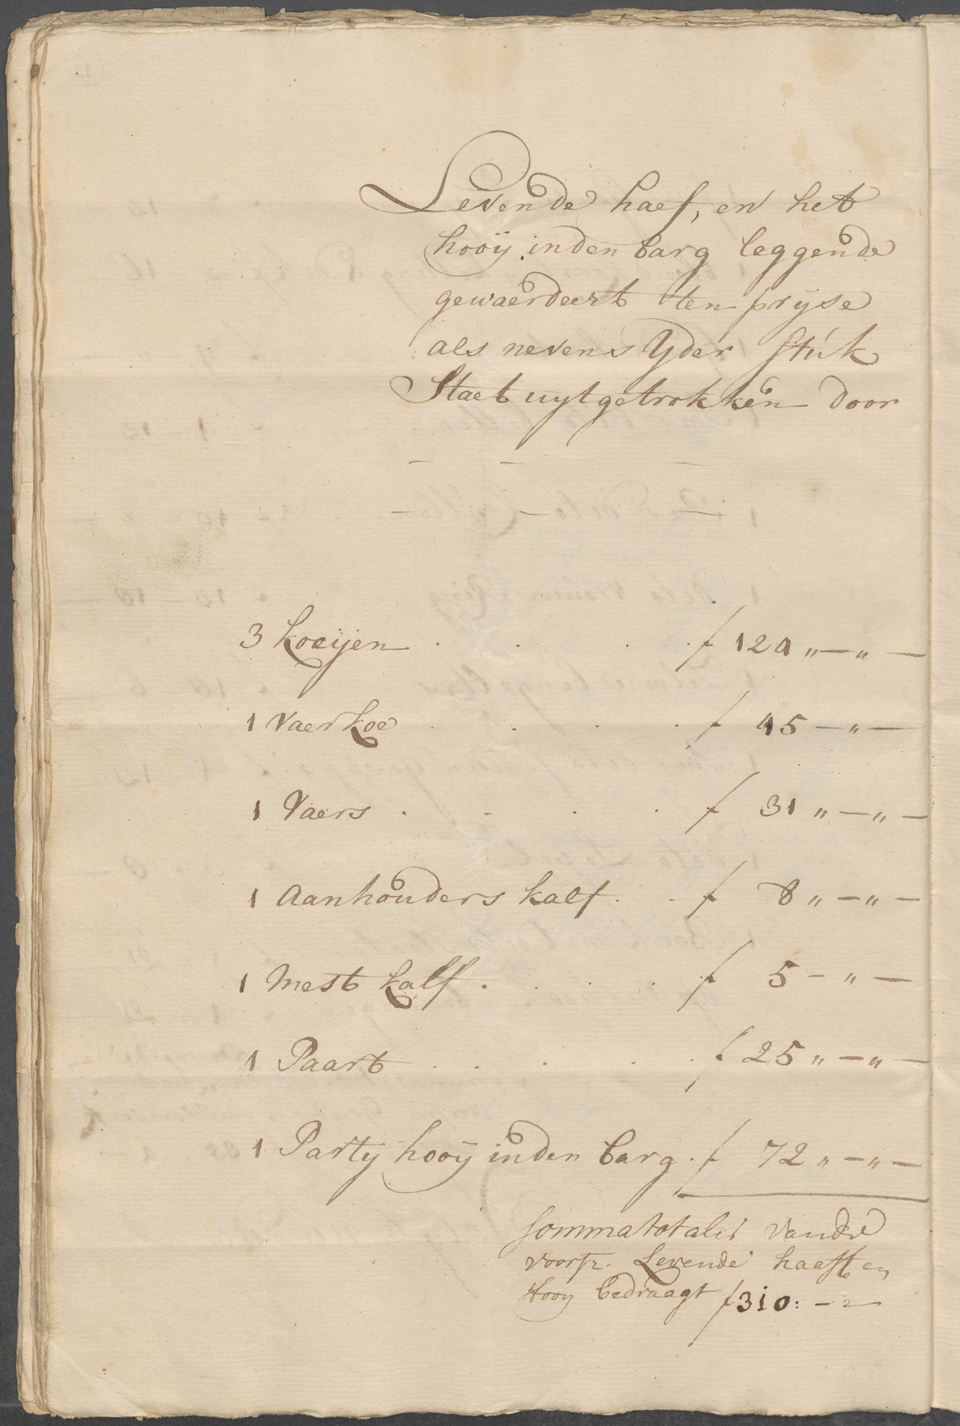 Levende haef, en het
hooÿ in den barg leggende
gewaerdeert ten prÿse
als nevens Yder stúk
Staet uÿtgetrokken door
— — —
— — —
3 koeijen . . . f 124 „ — „ —
1 vaerkoe . . . . f 45 — „ —
1 Vaers . . . . f 31 „ — „ —
1 Aanhouders kalf . . f 8 „ — „ —
1 mest kalf . . . . f 5 — „ —
1 Paart . . . . f 25 „ — „ —
1 Partÿ hooÿ in den barg . f 72 „ — „ —
Somma totalis vande
voorsz. Levende haeff en
Hooy bedraagt f 310: — „ —